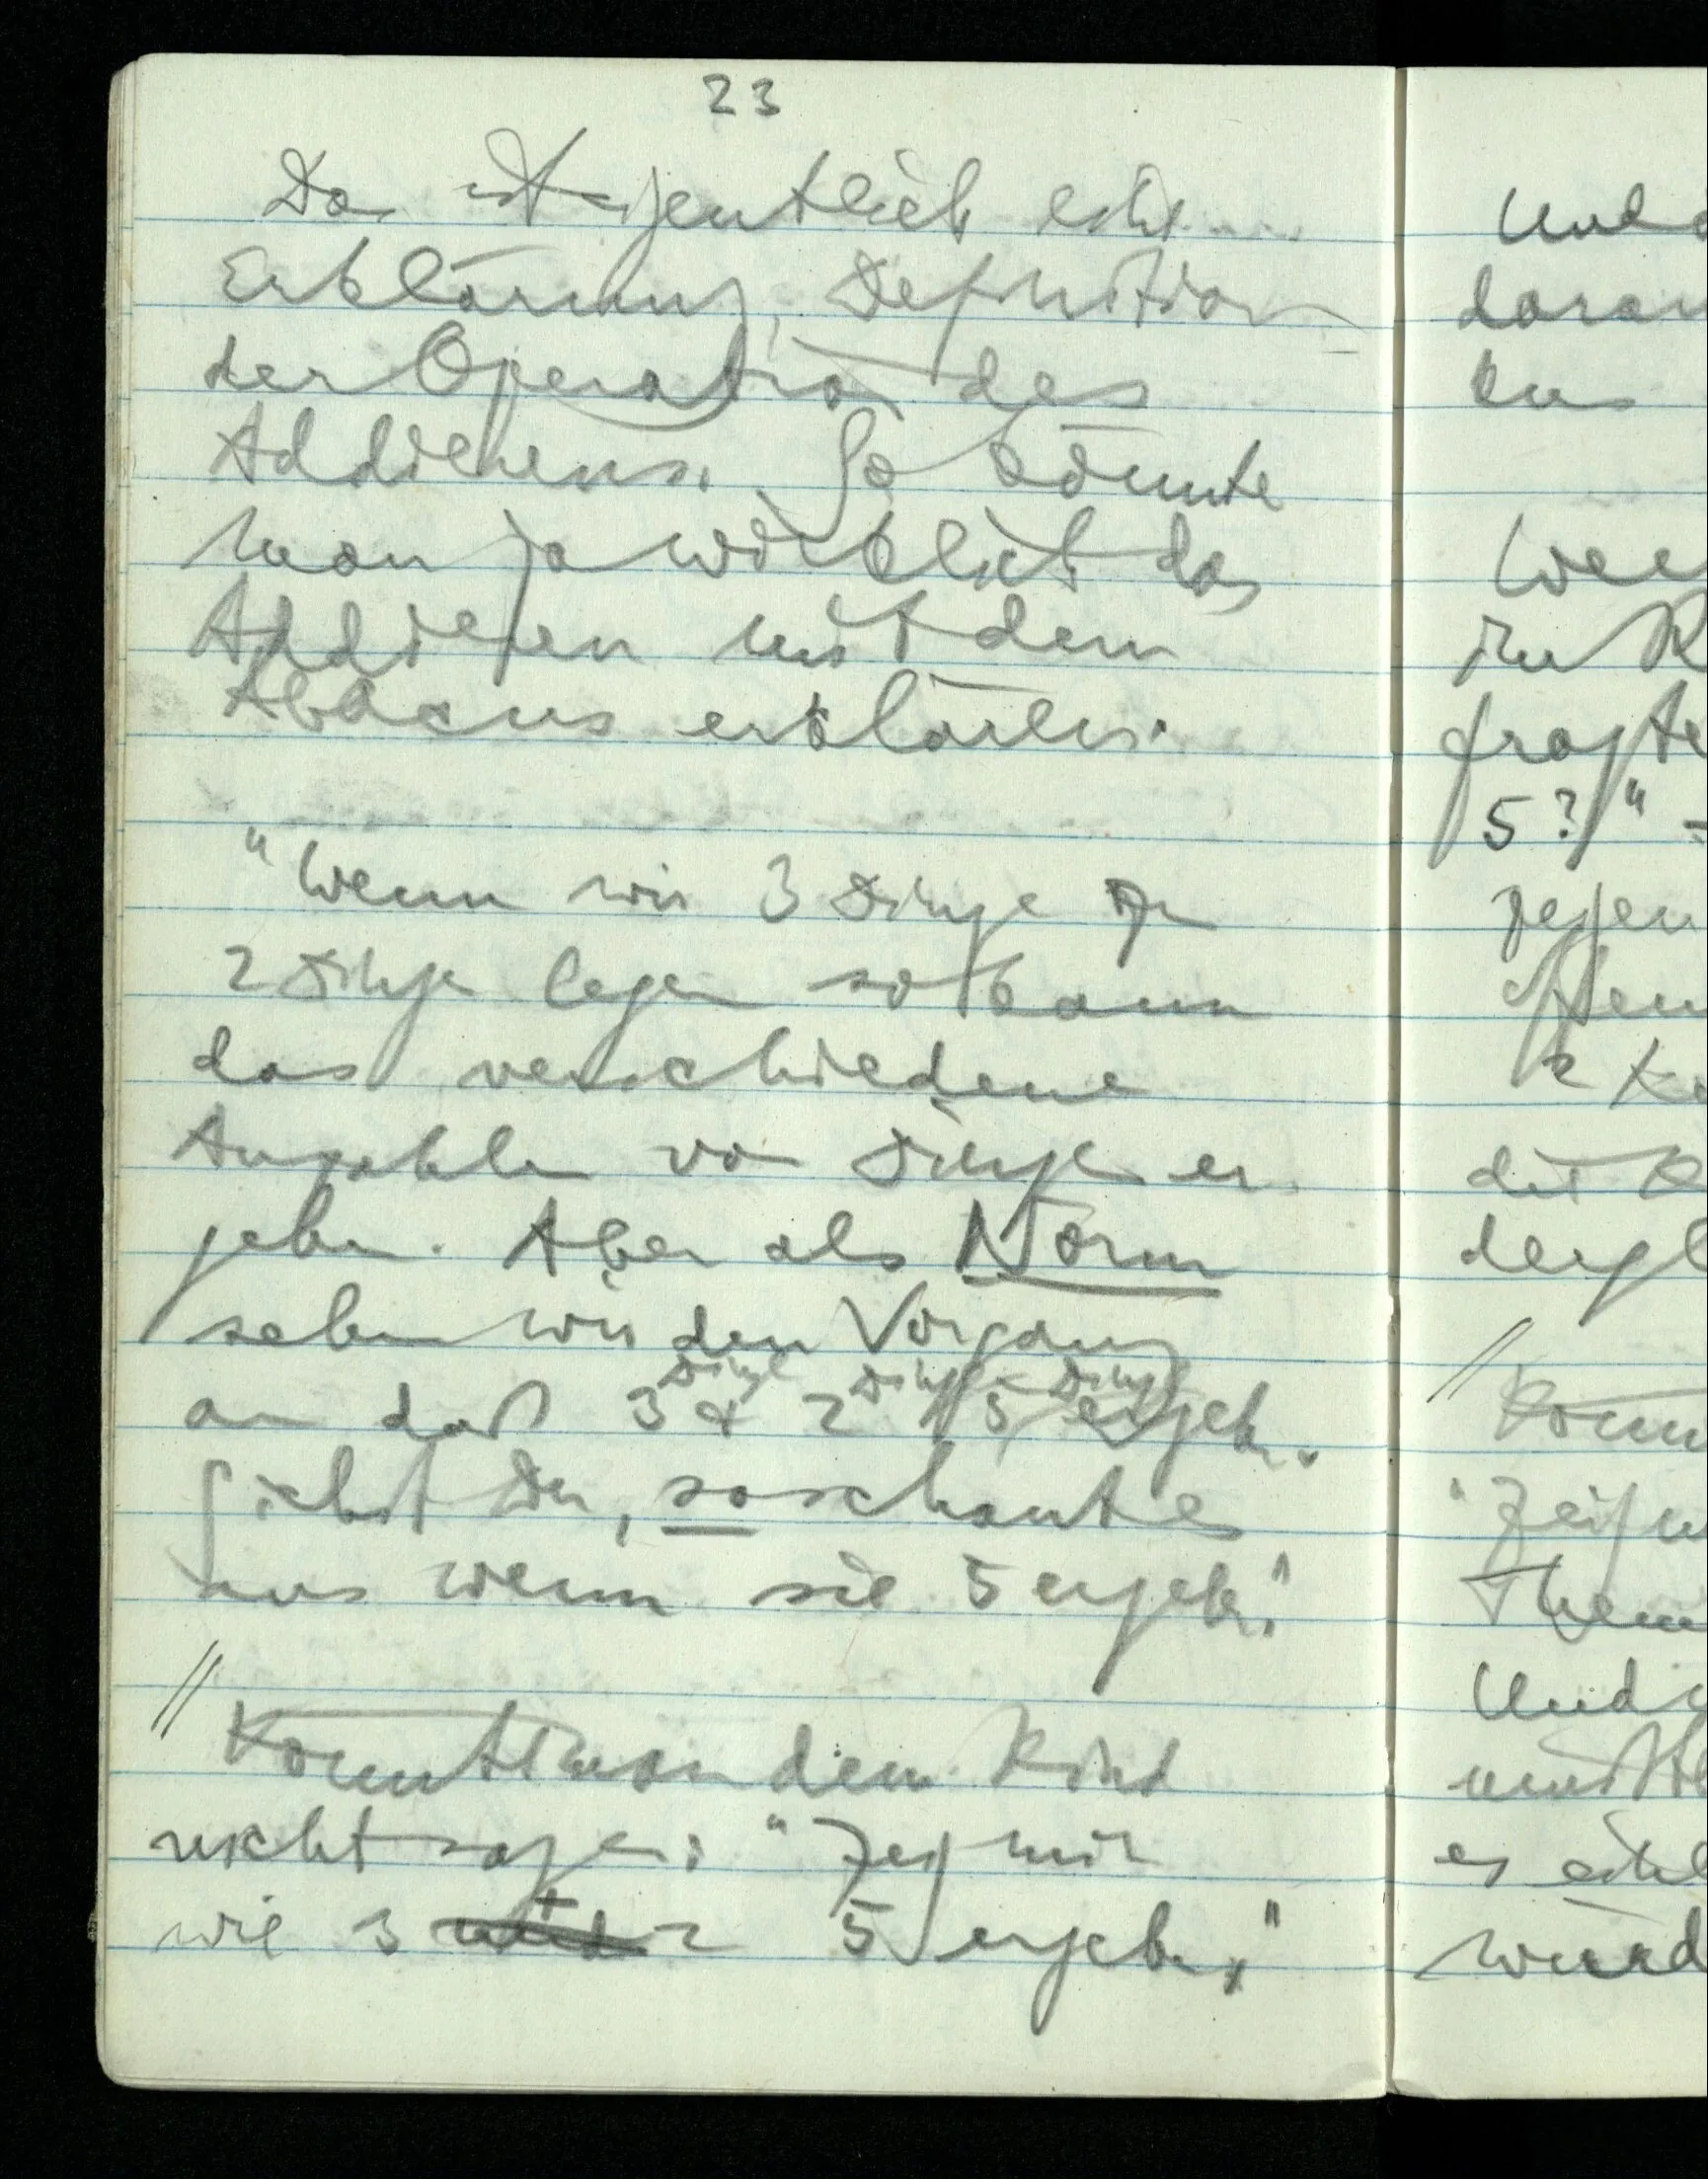 23
Das ist eigentlich eine
Erklärung, Definition
der Operation des
Addierens. So könnte
man ja wirklich das
Addieren mit dem
Abacus erklären.
"Wenn wir 3 Dinge zu
2 Dinge legen so kann
das verschiedene
Anzahlen von Dingen er
geben. Aber als Norm
sehen wir den Vorgang
an daß 3 Dinge & 2 Dinge 5 Dinge ergeben.
Siehst Du, so schaut es
aus wenn sie 5 ergeben."
//
Könnte man dem Kind
nicht sagen: "Zeig mir
wie 3 + 2 5 ergeben"
Und
daran
das
5?"
//
"Zeig